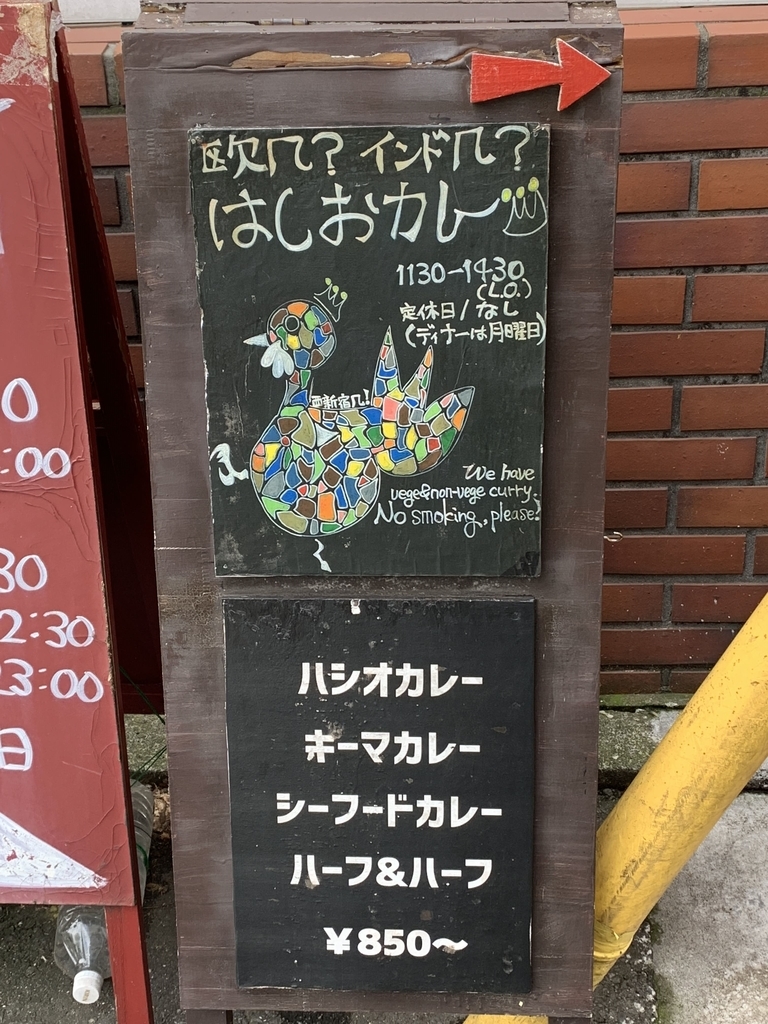 欧風? インド風?
はしおカレー
1130-1430
(L.O.)
定休日/なし
(ディナーは月曜日)
西新宿店!
We have
vege&non-vege curry.
No smoking, please!
ハシオカレー
キーマカレー
シーフードカレー
ハーフ&ハーフ
¥850〜
0
:00
30
2:30
23:00
日